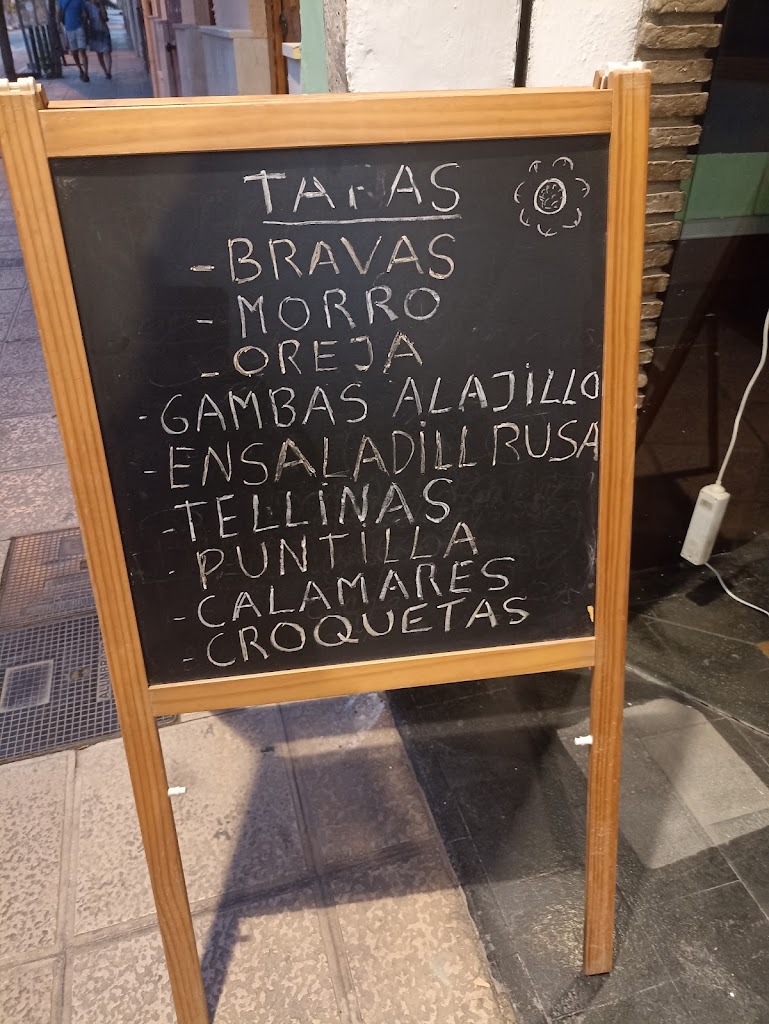 TAPAS
- BRAVAS
- MORRO
- OREJA
- GAMBAS ALAJILLO
- ENSALADILL RUSA
- TELLINAS
- PUNTILLA
- CALAMARES
- CROQUETAS